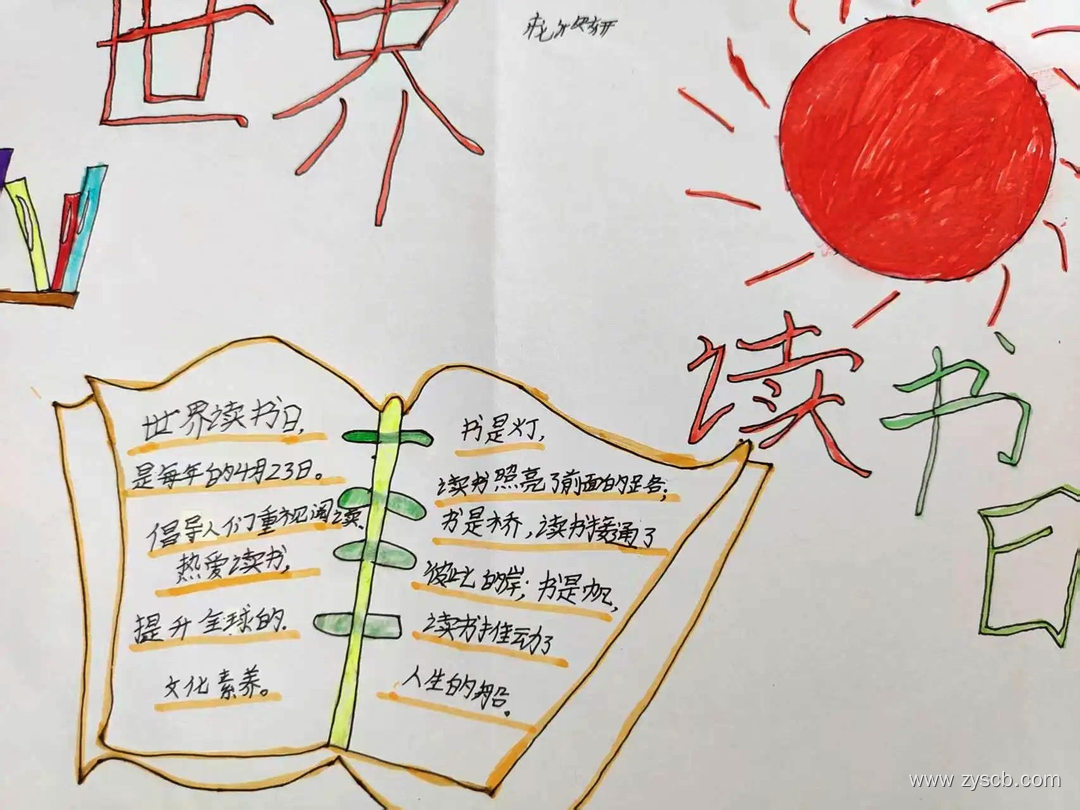 世界
读书
日
世界读书日,
是每年的4月23日。
倡导人们重视阅读,
热爱读书,
提升全球的
文化素养。
书是灯,
读书照亮了前面的路;
书是桥,读书接通了
彼此的岸;书是帆,
读书推动了
人生的船。
www.zyscb.com